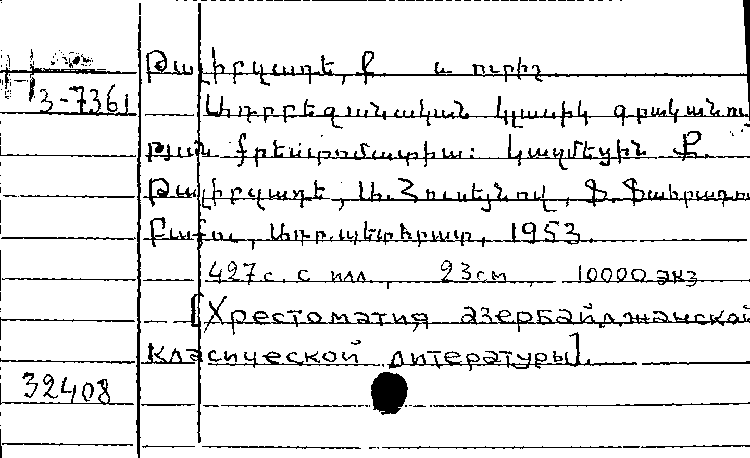 Թալիբզադե, Ք. և ուրիշ
З-7361
Ադրբեջանական կլասիկ գրականու
թյան խրեստոմատիա: Կազմեցին Ք.
Թալիբզադե, Ա. Հուսեյնով,
Բաքու, Ադր.պետհրատ, 1953.
427 с. с илл., 23 см, 10000 экз
[Хрестоматия азербайджанской
класической литературы].
32408